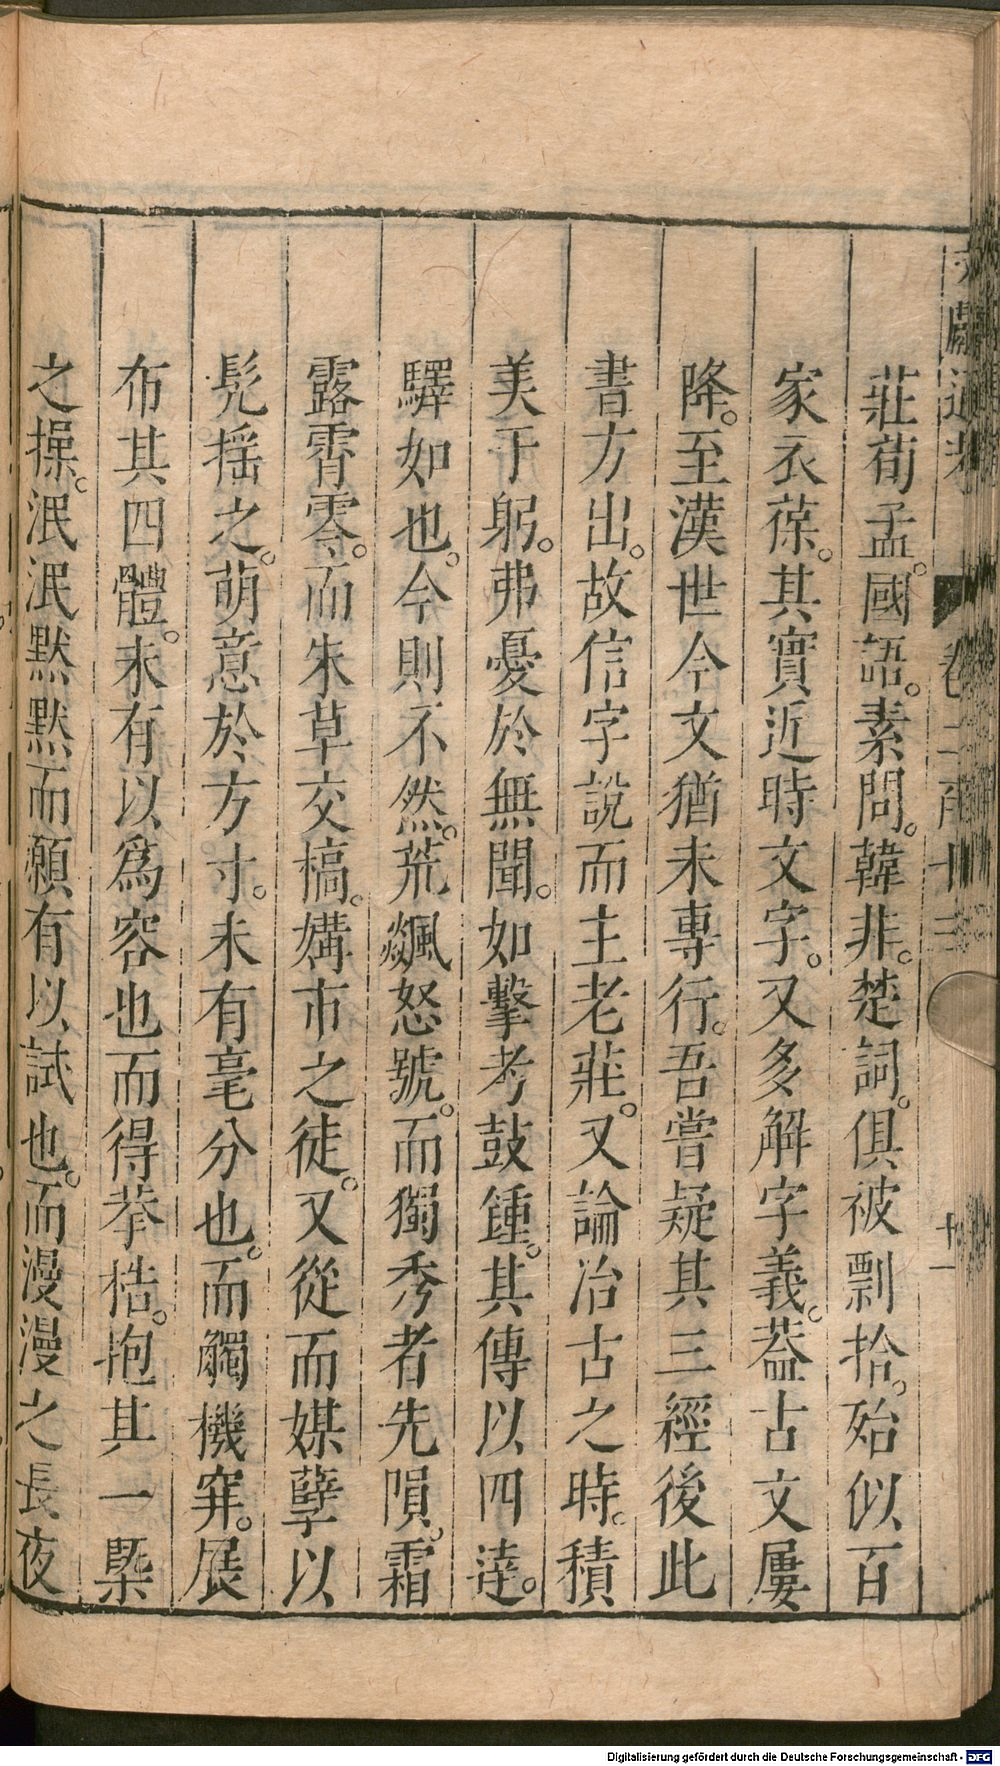 文獻通考 卷二百十三 十一
莊荀孟。國語。素問。韓非。楚詞。俱被剽拾。殆似百
家衣葆。其實近時文字。又多解字義。葢古文屢
降。至漢世今文猶未專行。吾嘗疑其三經後此
書方出。故信字說而主老莊。又論冶古之時。積
美于躬。弗憂於無聞。如擊考鼓鍾。其傳以四達。
驛如也。今則不然。荒飊怒號。而獨秀者先隕。霜
露霄零。而朱草交槁。媾市之徒。又從而媒孽以
髡搖之。萌意於方寸。未有毫分也。而觸機穽。展
布其四體。未有以爲容也而得拲梏。抱其一槩
之操。泯泯默默而願有以試也。而漫漫之長夜
Digitalisierung gefördert durch die Deutsche Forschungsgemeinschaft - DFG